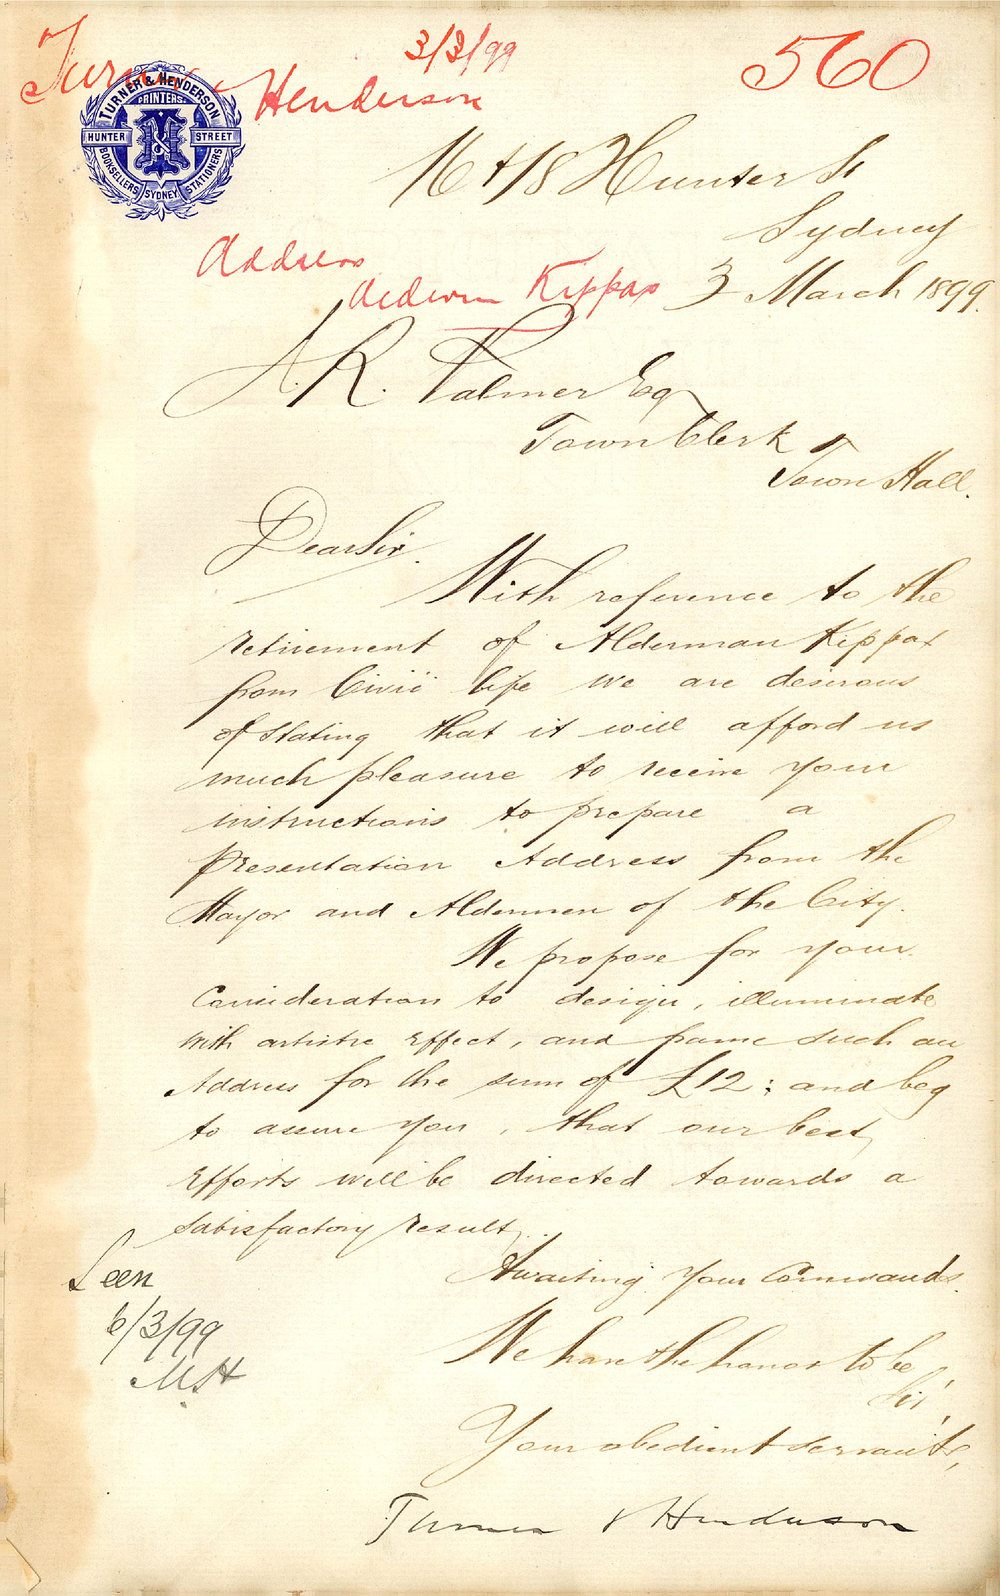 3/3/99
560
Turner
Henderson
TURNER & HENDERSON
PRINTERS
HUNTER STREET
BOOKSELLERS SYDNEY STATIONERS
16 & 18 Hunter St
Sydney
Address
Alderman Kippax
3 March 1899.
A. R. Palmer Esq
Town Clerk
Town Hall.
Dear Sir.
With reference to the
retirement of Alderman Kippax
from Civic life we are desirous
of stating that it will afford us
much pleasure to receive your
instructions to prepare a
Presentation Address from the
Mayor and Aldermen of the City.
We propose for your
Consideration to design, illuminate
with artistic effect, and frame such an
Address for the sum of £12; and beg
to assure you, that our best
efforts will be directed towards a
satisfactory result.
Awaiting your Commands.
We have the honor to be
Sir,
Your obedient servants,
Turner & Henderson
Seen
6/3/99